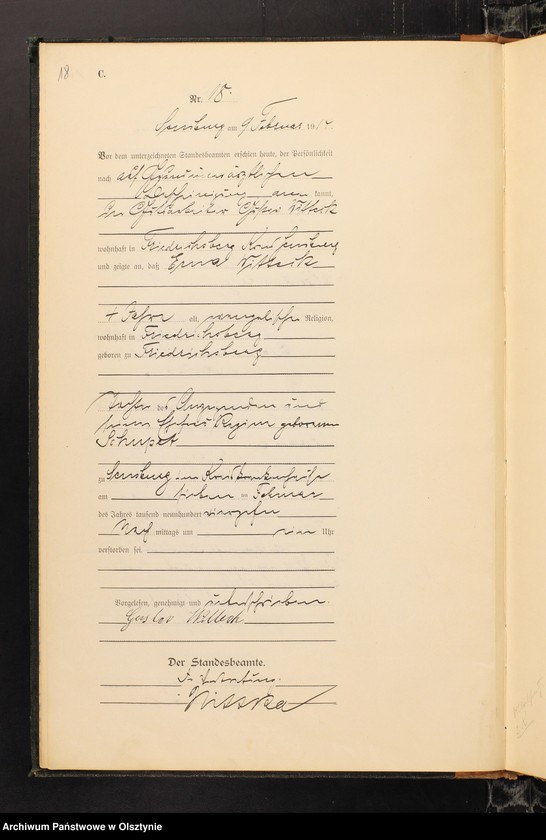 18
C.
Nr. 18.
Sensburg am 9. Februar 1914.
Vor dem unterzeichneten Standesbeamten erschien heute, der Persönlichkeit
nach auf
Bescheinigung aner kannt,
der Wittek
wohnhaft in Friedrichsberg Kreis Sensburg
und zeigte an, daß Erna Wittek
Jahre alt, evangelischer Religion,
wohnhaft in Friedrichsberg
geboren zu Friedrichsberg
Tochter des Anzeigenden und
seiner Ehefrau Regine geborenen
zu Sensburg im Kreiskrankenhause
am sieben ten Februar
des Jahres tausend neunhundert vierzehn
Nach mittags um ein Uhr
verstorben sei.
Vorgelesen, genehmigt und unterschrieben.
Gustav Wittek
Der Standesbeamte.
In Vertretung.
Archiwum Państwowe w Olsztynie